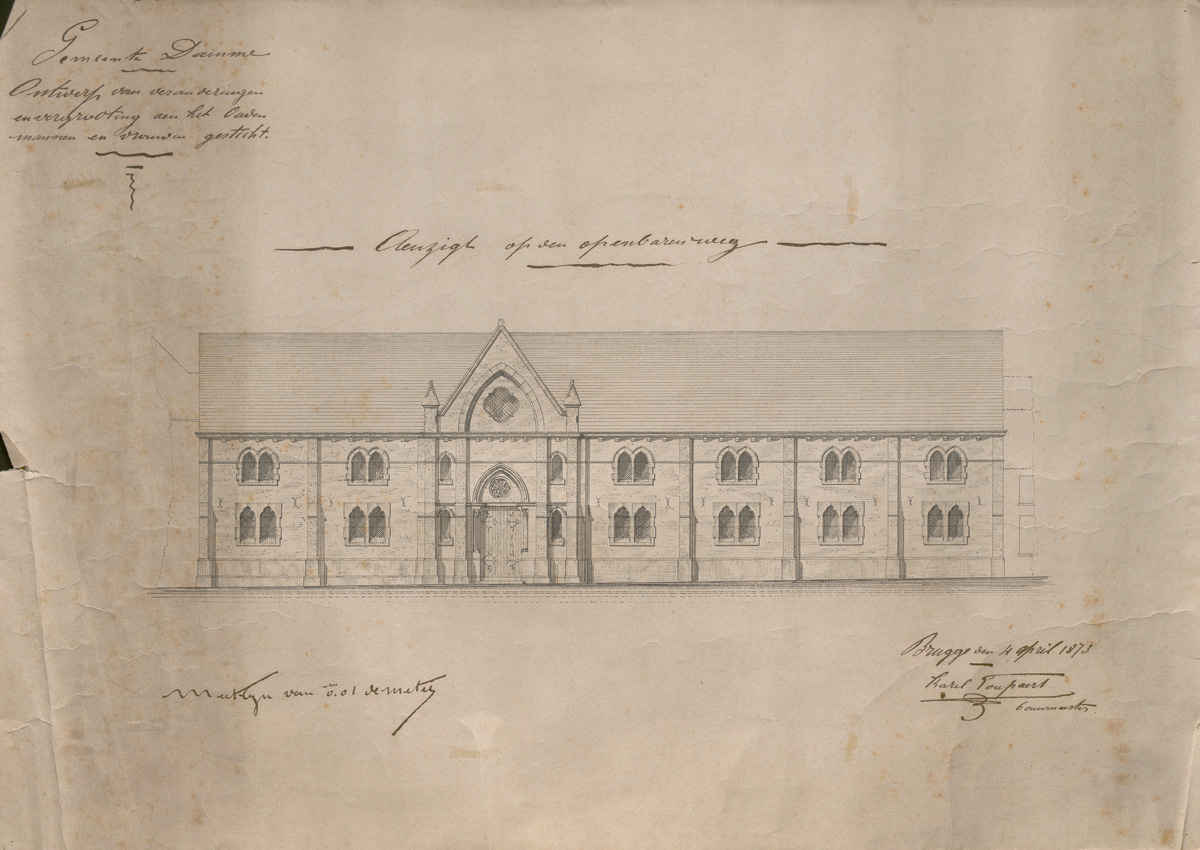 Gemeente Damme
Ontwerp van veranderingen
en vergrooting aen het Ouden
mannen en vrouwen gesticht.
Aenzigt op den openbaren weg
Meetlyn van 0.01 de meter
Brugge den 4 april 1873
Karel
bouwmeester.